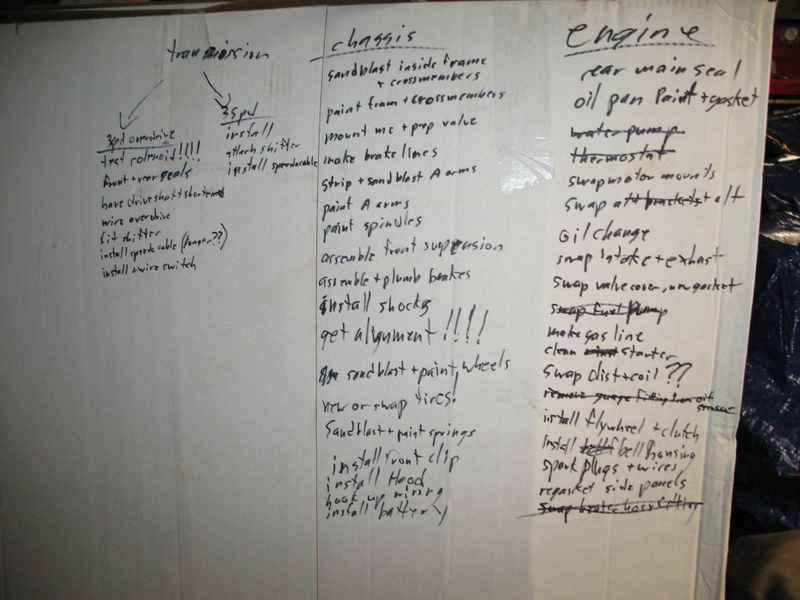 transmission
3spd overdrive
test solenoid!!!!
front + rear seals
have driveshaft shortened
wire overdrive
fit shifter
install speedocable (longer??)
install + wire switch
3spd
install
attach shifter
install speedocable
chassis
sandblast inside frame
+ crossmembers
paint fram + crossmembers
mount mc + prop value
make brake lines
strip + sandblast A arms
paint A arms
paint spindles
assemble front suspension
assemble + plumb brakes
install shocks
get alignment!!!!
sandblast + paint wheels
new or swap tires!
Sandblast + paint springs
install front clip
install Hood
hook up wiring
install battery
Engine
rear main seal
oil pan Paint + gasket
water pump
thermostat
swap motor mounts
swap alt brackets + alt
Oil change
swap intake + exhast
swap valve cover, new gasket
swap fuel pump
make gas line
clean starter
Swap dist + coil ??
remove guage fitting from oil
install flywheel + clutch
Install bell housing
spark plugs + wires
regasket side panels
swap heater hose fitting